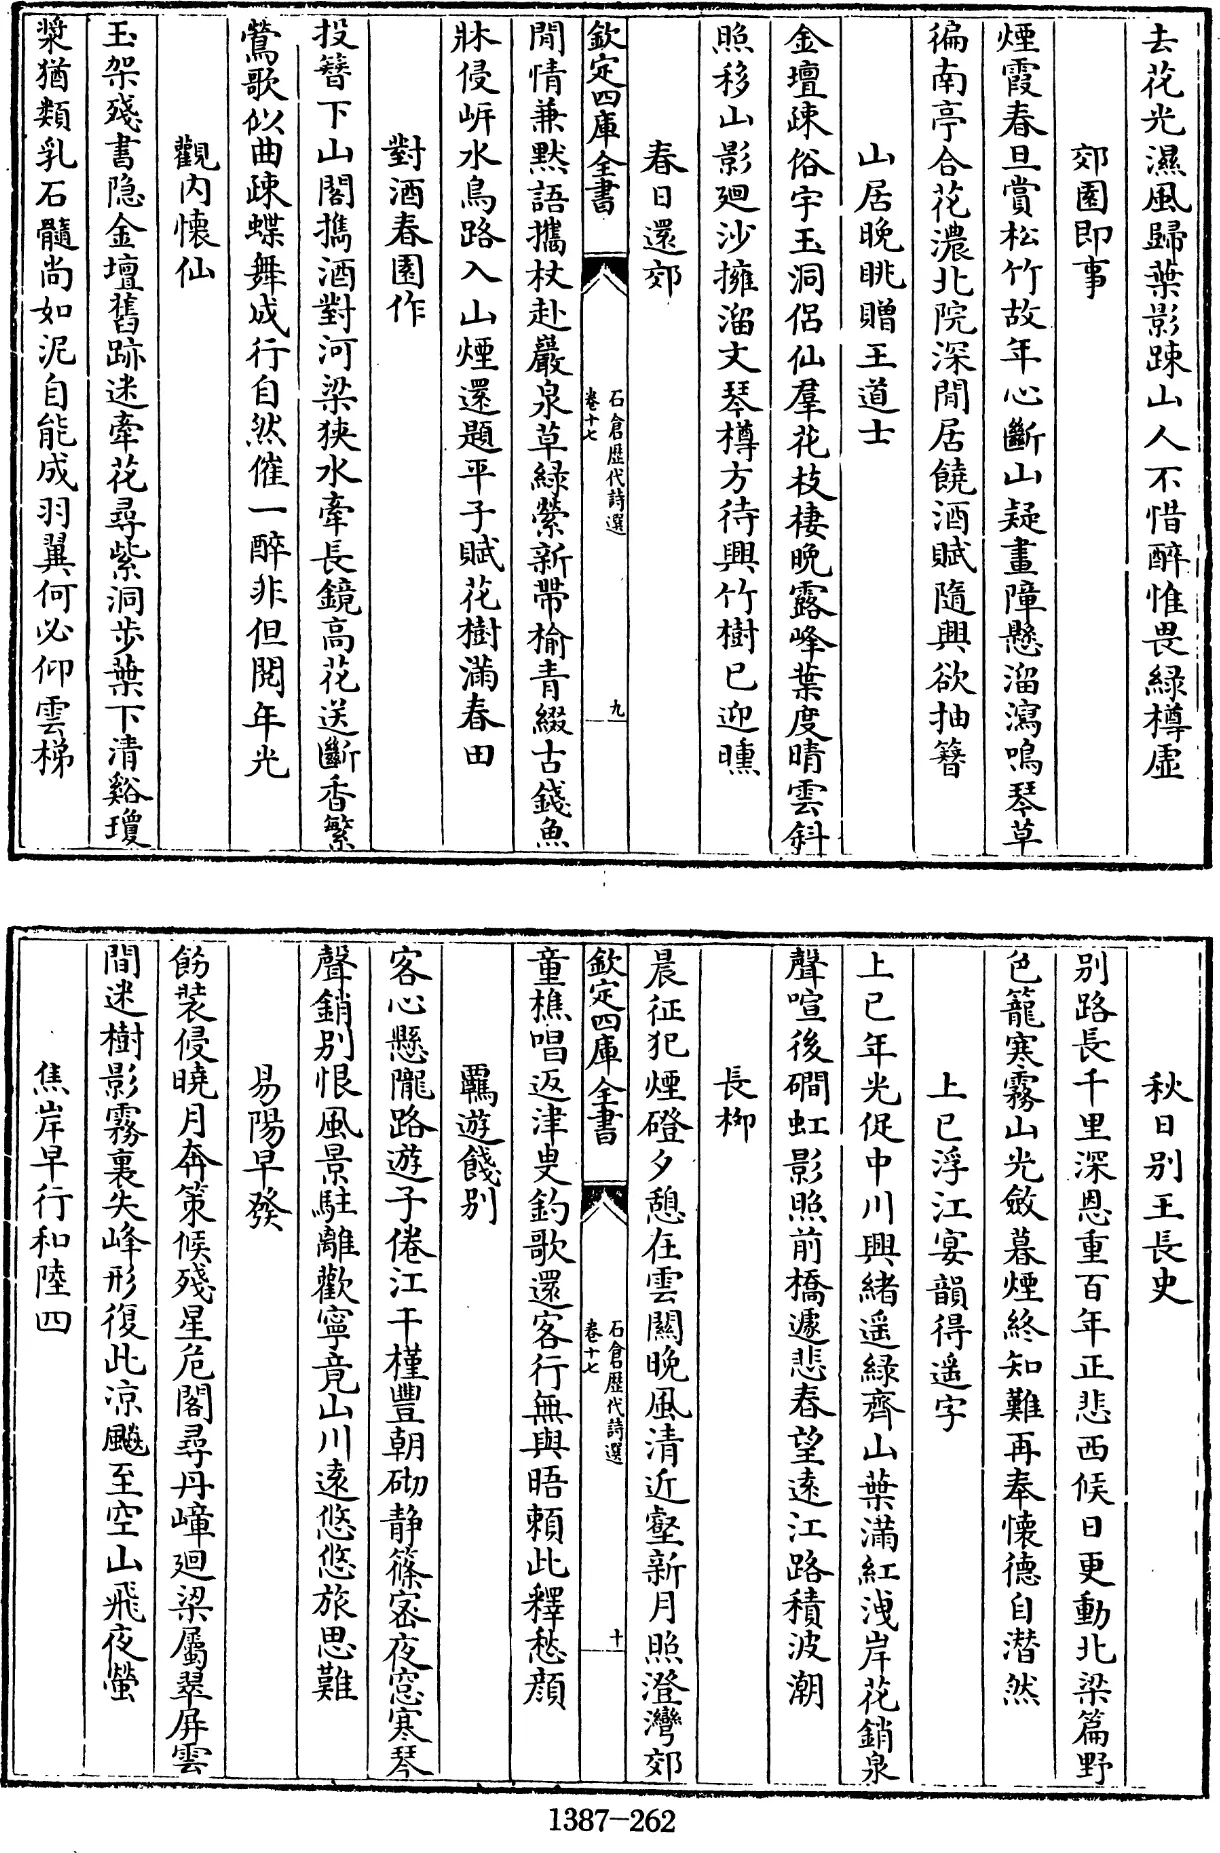 去花光濕風歸葉影疎山人不惜醉惟畏緑樽虛
郊園即事
煙霞春旦賞松竹故年心斷山疑畫障懸溜瀉鳴琴草
徧南亭合花濃北院深閒居饒酒賦隨興欲抽簪
山居晚眺贈王道士
金壇疎俗宇玉洞侣仙羣花枝棲晩露峰葉度晴雲斜
照移山影廻沙擁溜文琴樽方待興竹樹已迎曛
春日還郊
欽定四庫全書
石倉歴代詩選
卷十七
九
閒情兼黙語攜杖赴巖泉草緑縈新帶榆青綴古錢魚
牀侵岍水鳥路入山煙還題平子賦花樹滿春田
對酒春園作
投簪下山閣攜酒對河梁狹水牽長鏡高花送斷香繁
鶯歌似曲疎蝶舞成行自然催一醉非但閱年光
觀内懷仙
玉架殘書隐金壇舊跡迷牽花尋紫洞步葉下清谿瓊
漿猶類乳石髓尚如泥自能成羽翼何必仰雲梯
秋日别王長史
别路長千里深恩重百年正悲西候日更動北梁篇野
色籠寒霧山光斂暮煙終知難再奉懷德自潸然
上巳浮江宴韻得遥字
上巳年光促中川興緒遥緑齊山葉滿紅洩岸花銷泉
聲喧後磵虹影照前橋遽悲春望遠江路積波潮
長柳
晨征犯煙磴夕憩在雲關晚風清近壑新月照澄灣郊
欽定四庫全書
石倉歴代詩選
卷十七
十
童樵唱返津叟釣歌還客行無與晤頼此釋愁顔
羈遊餞别
客心懸隴路遊子倦江干槿豐朝砌静篠密夜窓寒琴
聲銷别恨風景駐離歡寧竟山川逺悠悠旅思難
易陽早發
飭裝侵曉月奔策候殘星危閣尋丹嶂廻梁屬翠屏雲
間迷樹影霧裏失峰形復此凉飇至空山飛夜螢
焦岸早行和陸四
1387-262